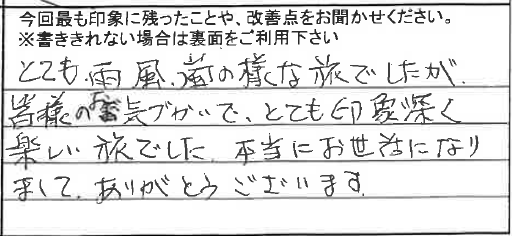 今回最も印象に残ったことや、改善点をお聞かせください。
※書ききれない場合は裏面をご利用下さい
とても、雨風、嵐の様な旅でしたが、
皆様のお気づかいで、とても印象深く
楽しい旅でした。本当にお世話になり
まして、ありがとうございます。